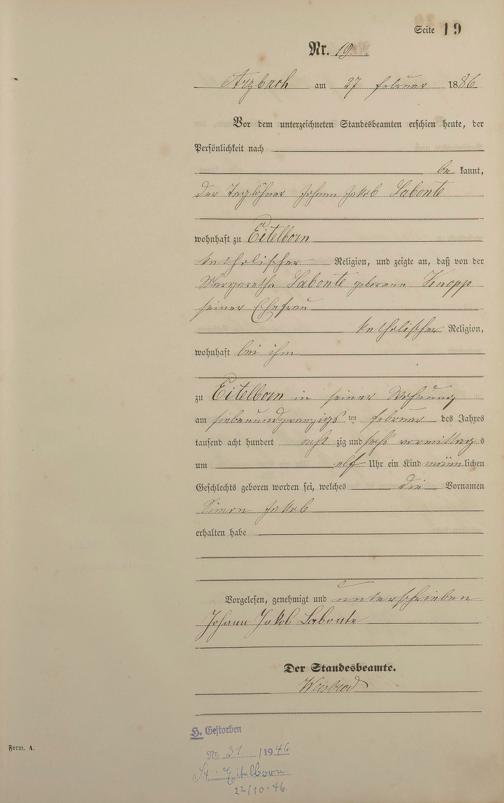 Seite 19
Nr. 19.
Arzbach am 27 Februar 1886.
Vor dem unterzeichneten Standesbeamten erschien heute, der
Persönlichkeit nach
be kannt,
der Taglöhner Johann Jakob Labonte
wohnhaft zu Eitelborn
katholischer Religion, und zeigte an, daß von der
Margaretha Labonte geborene Knopp
seiner Ehefrau
katholischer Religion,
wohnhaft bei ihm
zu Eitelborn in seiner Wohnung
am siebenundzwanzigs ten Februar des Jahres
tausend acht hundert acht zig und sechs vormittag s
um elf Uhr ein Kind männ lichen
Geschlechts geboren worden sei, welches die Vornamen
Simon Jakob
erhalten habe
Vorgelesen, genehmigt und unterschrieben
Johann Jakob Labonte
Der Standesbeamte.
H. Gestorben
Nr. 31 /1946
St. Eitelborn
22/10.46
Form. A.